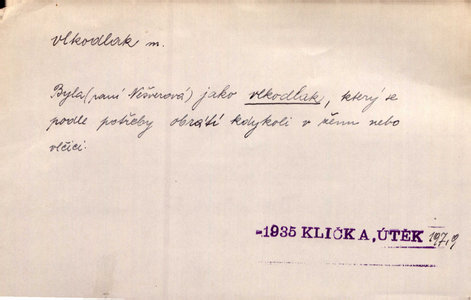 vlkodlak m.
Byla (paní Nešverová) jako vlkodlak, který se
podle potřeby obrátí kdykoli v ženu nebo
vlčici.
-1935 KLIČKA, ÚTĚK 197,9